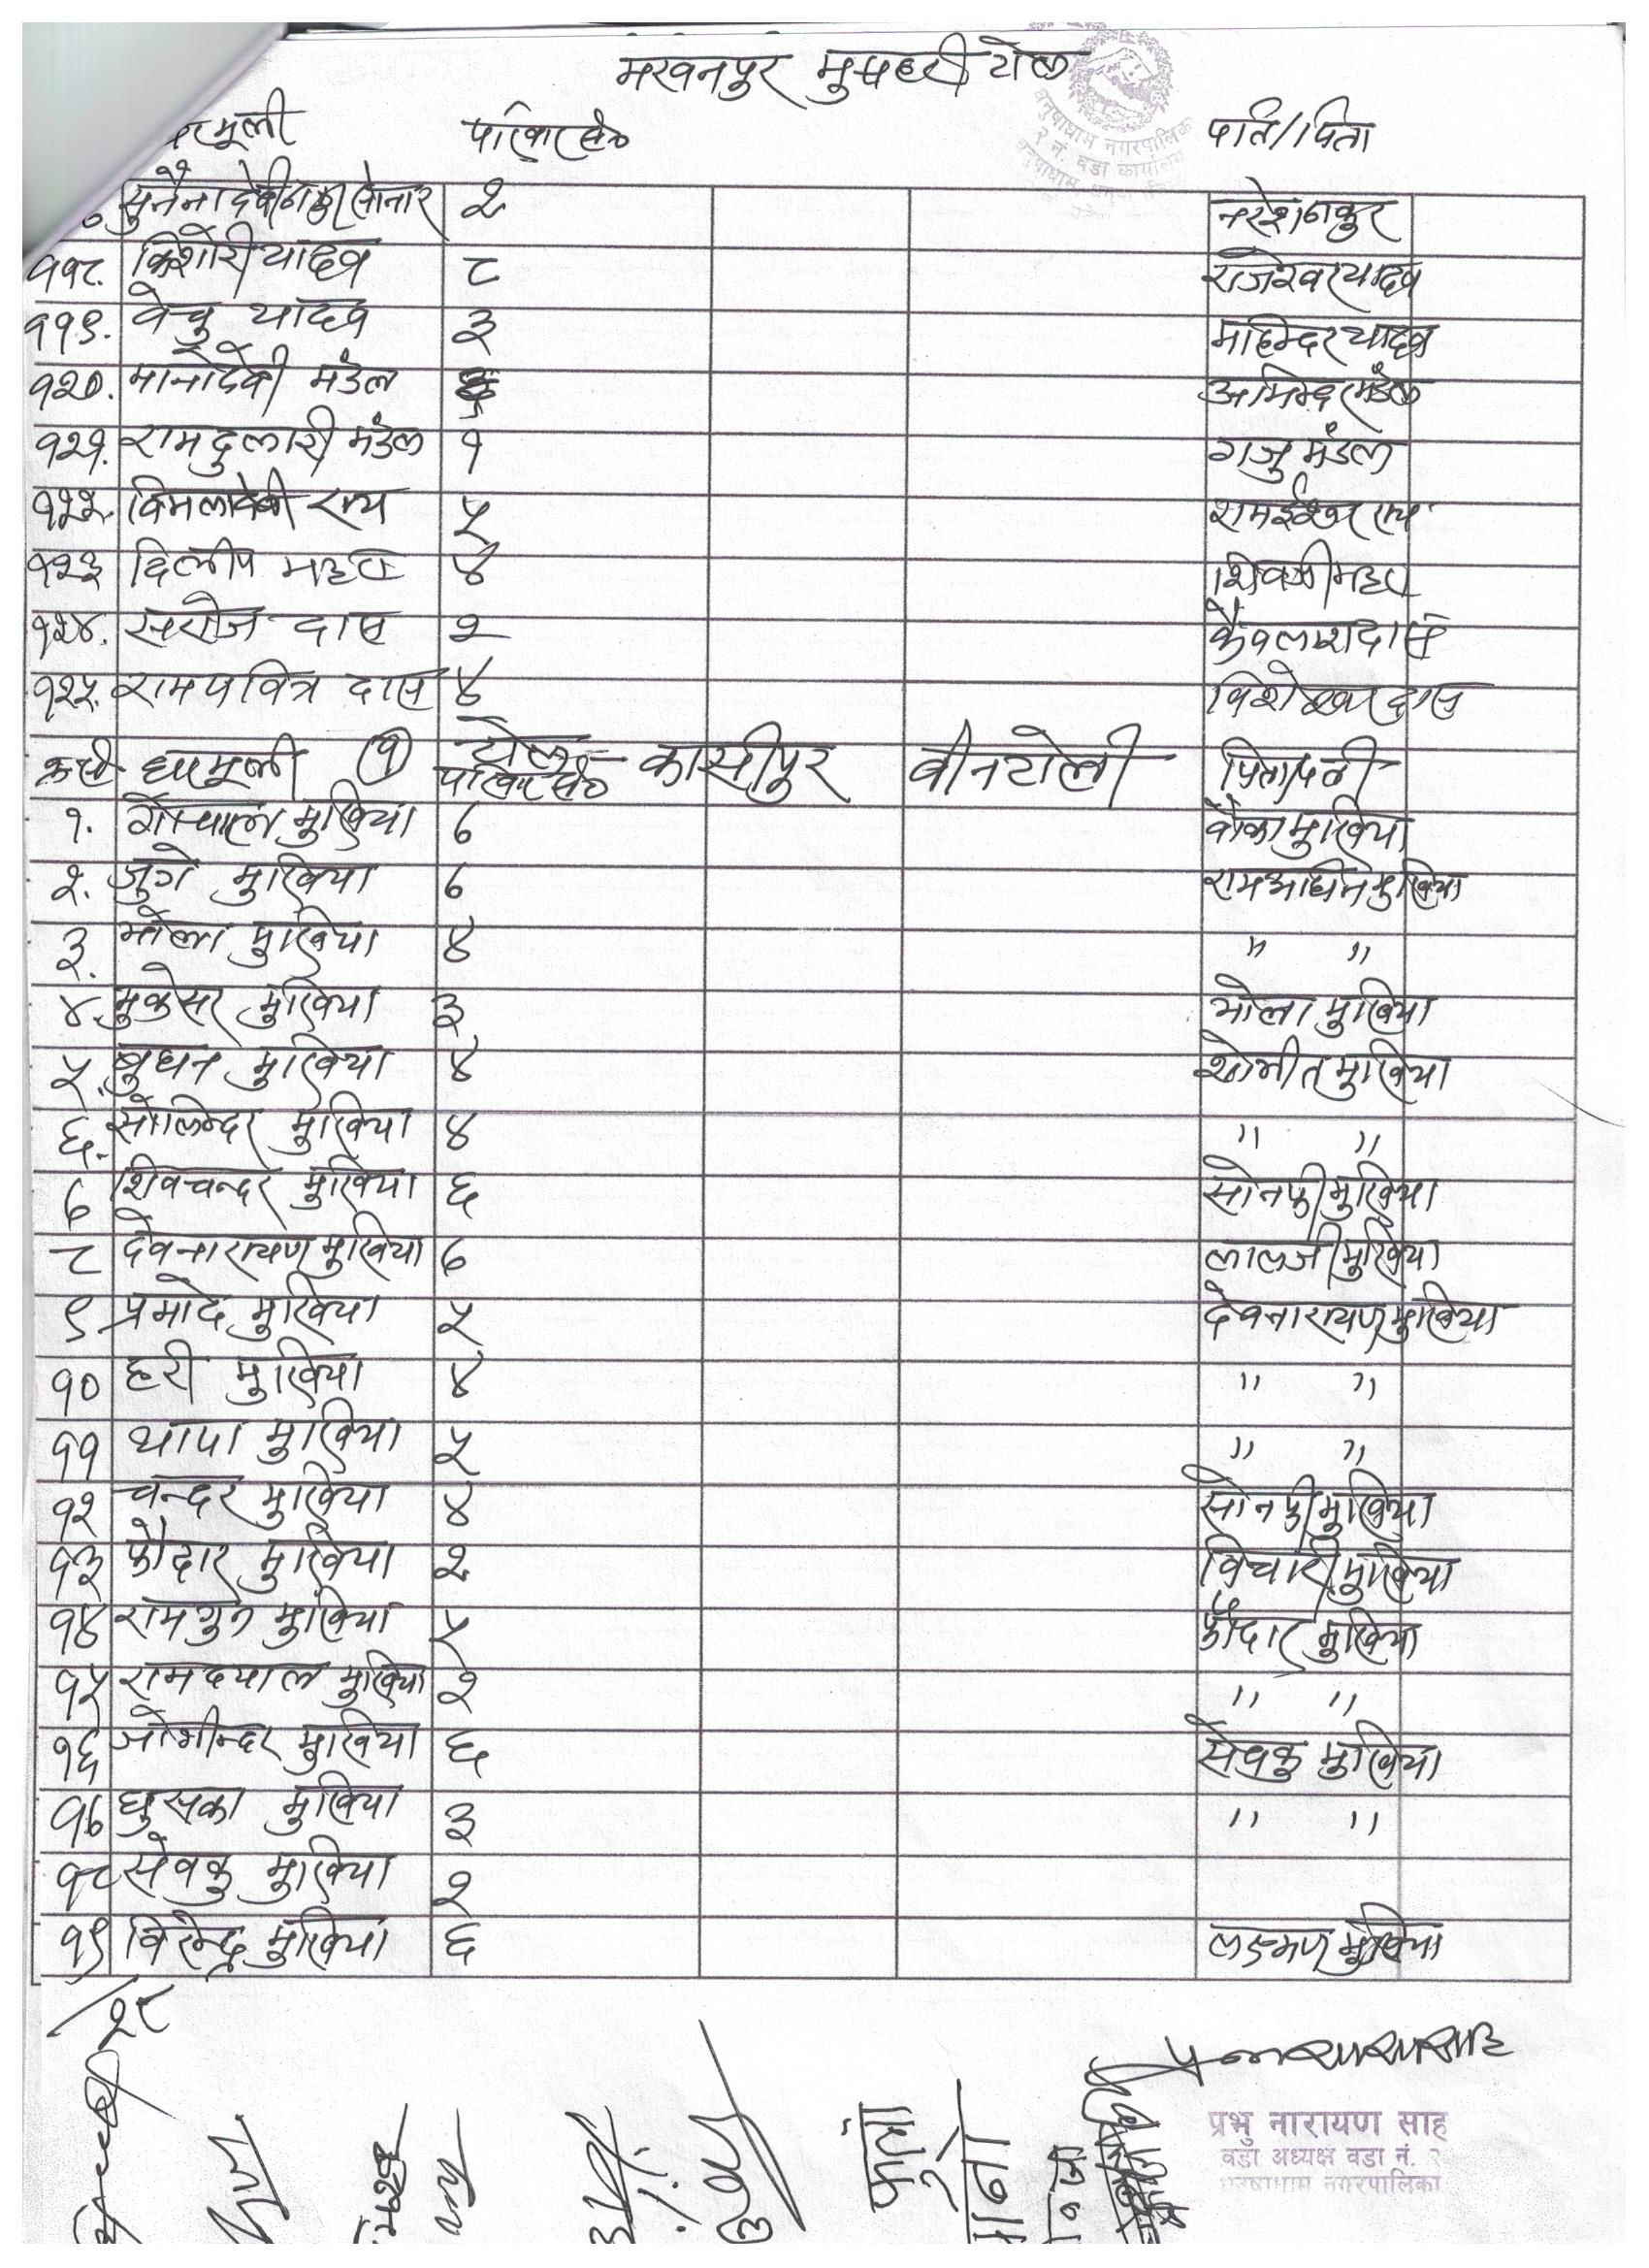 मखनपुर मुसहरी टोल
धनुषाधाम नगरपालिका
२ नं. वडा कार्यालय
घरमूली परिवार सं० पति/पिता
सुनैना देवी ठाकुर सोनार २ नरेश ठाकुर
११८. किशोरी यादव ८ राजेश्वर यादव
११९. वेचु यादव ३ महिन्दर यादव
१२०. मानो देवी मंडल अमिन्दर मंडल
१२१. राम दुलारी मंडल १ गजु मंडल
१२२. विमला देवी राय ५ रामईश्वर राय
१२३ दिलीप महरा ४ शिवजी महरा
१२४. सरोज दास २ कैवलाश दास
१२५. राम पवित्र दास ४ विशेश्वर दास
क्र.सं घरमूली (१) टोल कासीपुर वीनटोली
परिवार सं० पिता/पती
१. मुखिया ७ वौका मुखिया
२. जुगे मुखिया ७ राम अधिन मुखिया
३. भोला मुखिया ४ " "
४. मुकेसर मुखिया ३ भोला मुखिया
५. बुधन मुखिया ४ शोभीत मुखिया
६. सोलिन्दर मुखिया ४ " "
७ शिवचन्दर मुखिया ६ सोनफी मुखिया
८ देवनारायण मुखिया ७ लालजी मुखिया
९ प्रमोद मुखिया ५ देवनारायण मुखिया
१० हरी मुखिया ४ " "
११ थापा मुखिया ५ " "
१२ चन्दर मुखिया ४ सोनफी मुखिया
१३ फौदार मुखिया २ विचारी मुखिया
१४ रामगुन मुखिया ५ फौदार मुखिया
१५ रामदयाल मुखिया २ " "
१६ जोगीन्दर मुखिया ६ सेवकु मुखिया
१७ घुसका मुखिया ३ " "
१८ सेवकु मुखिया २
१९ विरेन्द्र मुखिया ६ लक्ष्मण मुखिया
/२८
प्रभु नारायण साह
वडा अध्यक्ष वडा नं. २
धनुषाधाम नगरपालिका